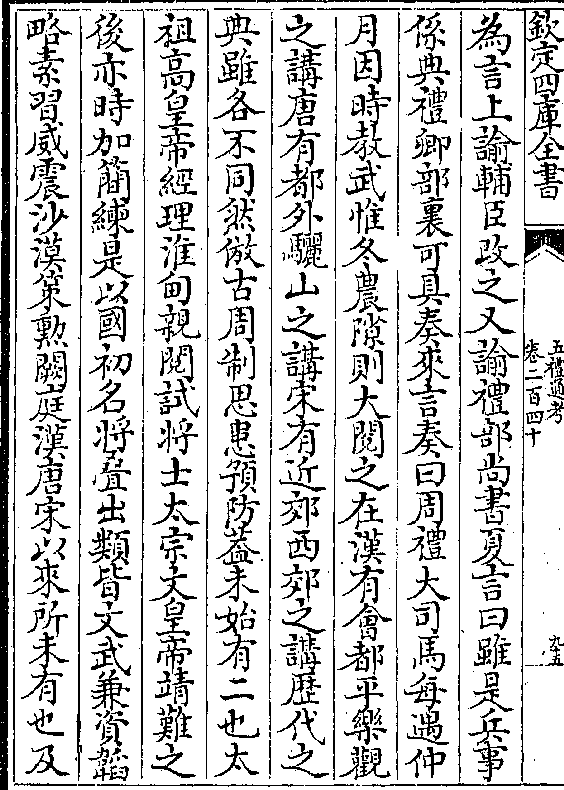 欽定四庫全書
五禮通考
卷二百四十
九十五
為言上諭輔臣改之又諭禮部尚書夏言曰雖是兵事
係典禮卿部裏可具奏來言奏曰周禮大司馬每遇仲
月因時教武惟冬農隙則大閱之在漢有會都平樂觀
之講唐有都外驪山之講宋有近郊西郊之講歴代之
典雖各不同然倣古周制思患預防葢未始有二也太
祖高皇帝經理淮甸親閱試將士太宗文皇帝靖難之
後亦時加簡練是以國初名將叠出類皆文武兼資韜
略素習威震沙漠策勲闕庭漢唐宋以來所未有也及